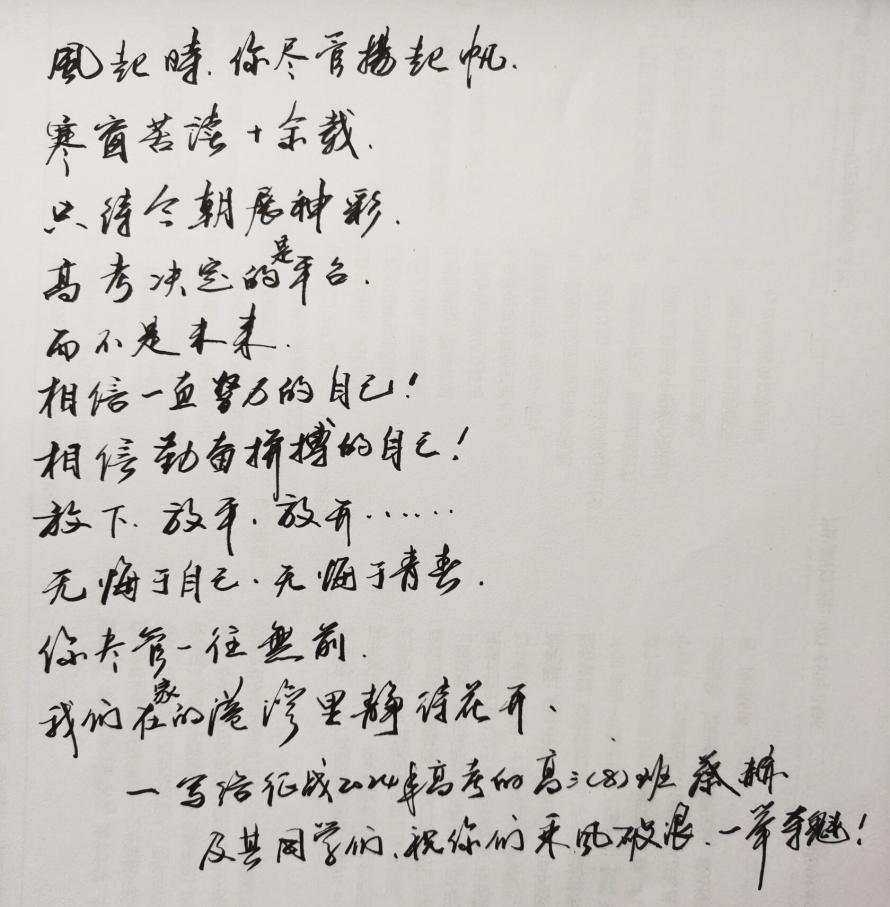 風起時.你尽管揚起帆.
寒窗苦读十余载.
只待今朝展神彩.
高考决定的是平台.
而不是未来.
相信一直努力的自己!
相信勤奋拼搏的自己!
放下.放平.放开……
无悔于自己.无悔于青春.
你尽管一往無前.
我们在家的港湾里静待花开、
一写给征战2024年高考的高三(8)班蔡赫
及其同学们.祝你们乘风破浪.一举夺魁!